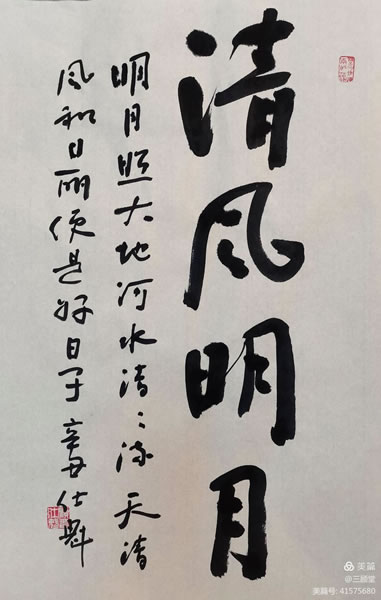 清风明月
明月照大地河水清〻流天清
风和日丽便是好日子 辛丑仕魁
美篇
@三顾堂
美篇号: 41575680